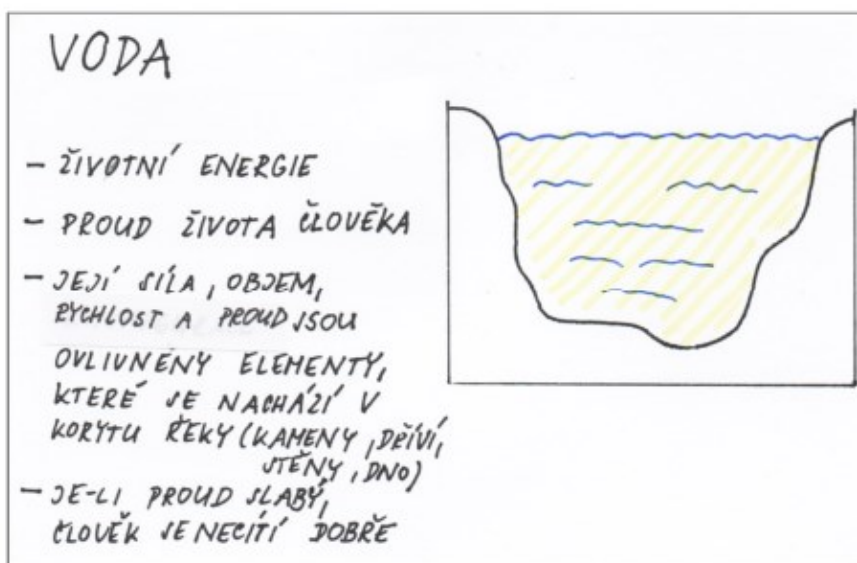 VODA
– ŽIVOTNÍ ENERGIE
– PROUD ŽIVOTA ČLOVĚKA
– JEJÍ SÍLA, OBJEM,
RYCHLOST A PROUD JSOU
OVLIVNĚNY ELEMENTY,
KTERÉ SE NACHÁZÍ V
KORYTU ŘEKY (KAMENY, DŘÍVÍ,
STĚNY, DNO)
– JE-LI PROUD SLABÝ,
ČLOVĚK SE NECÍTÍ DOBŘE